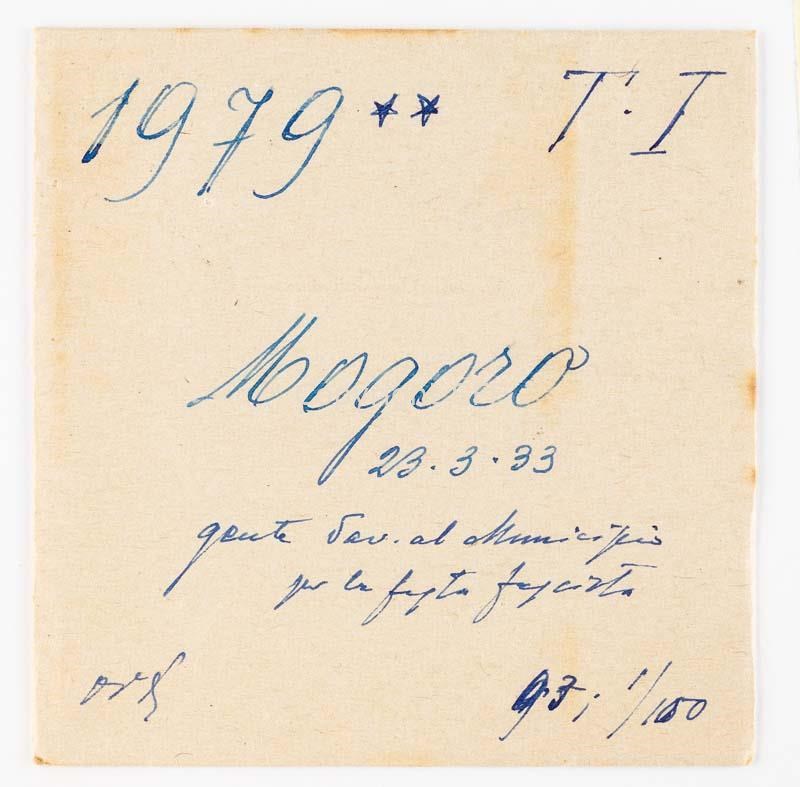 1979 ** T. I
Mogoro
23.3.33
gente dav. al Municipio
per la festa fascista
1/100